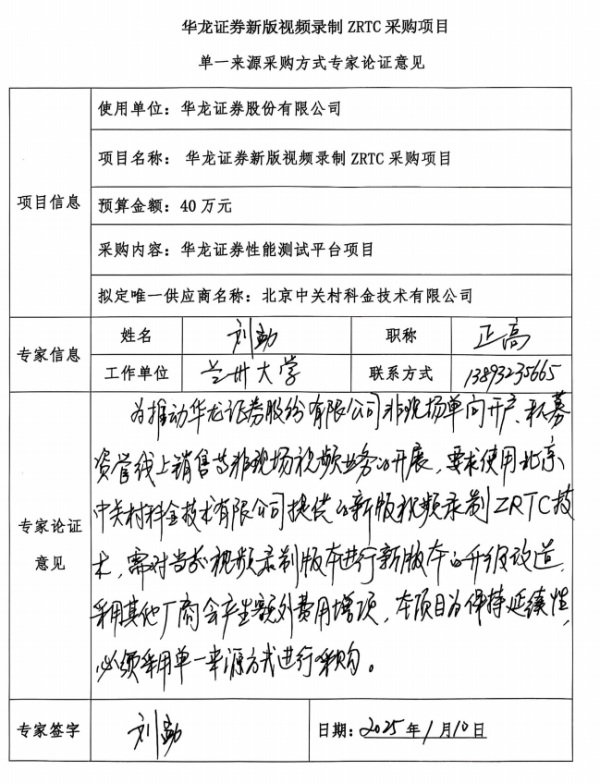 华龙证券新版视频录制 ZRTC 采购项目
单一来源采购方式专家论证意见
项目信息
使用单位：华龙证券股份有限公司
项目名称： 华龙证券新版视频录制 ZRTC 采购项目
预算金额：40 万元
采购内容：华龙证券性能测试平台项目
拟定唯一供应商名称：北京中关村科金技术有限公司
专家信息
姓名 刘勐 职称 正高
工作单位 兰州大学 联系方式 13893235665
专家论证
意见
为推动华龙证券股份有限公司非现场单向开户、私募
资管线上销售等非现场视频业务的开展，要求使用北京
中关村科金技术有限公司提供的新版视频录制ZRTC技
术，需对当前视频录制版本进行新版本的升级改造，
采用其他厂商会产生额外费用增项，本项目为保持延续性，
必须采用单一来源方式进行采购。
专家签字 刘勐 日期：2025年1月10日